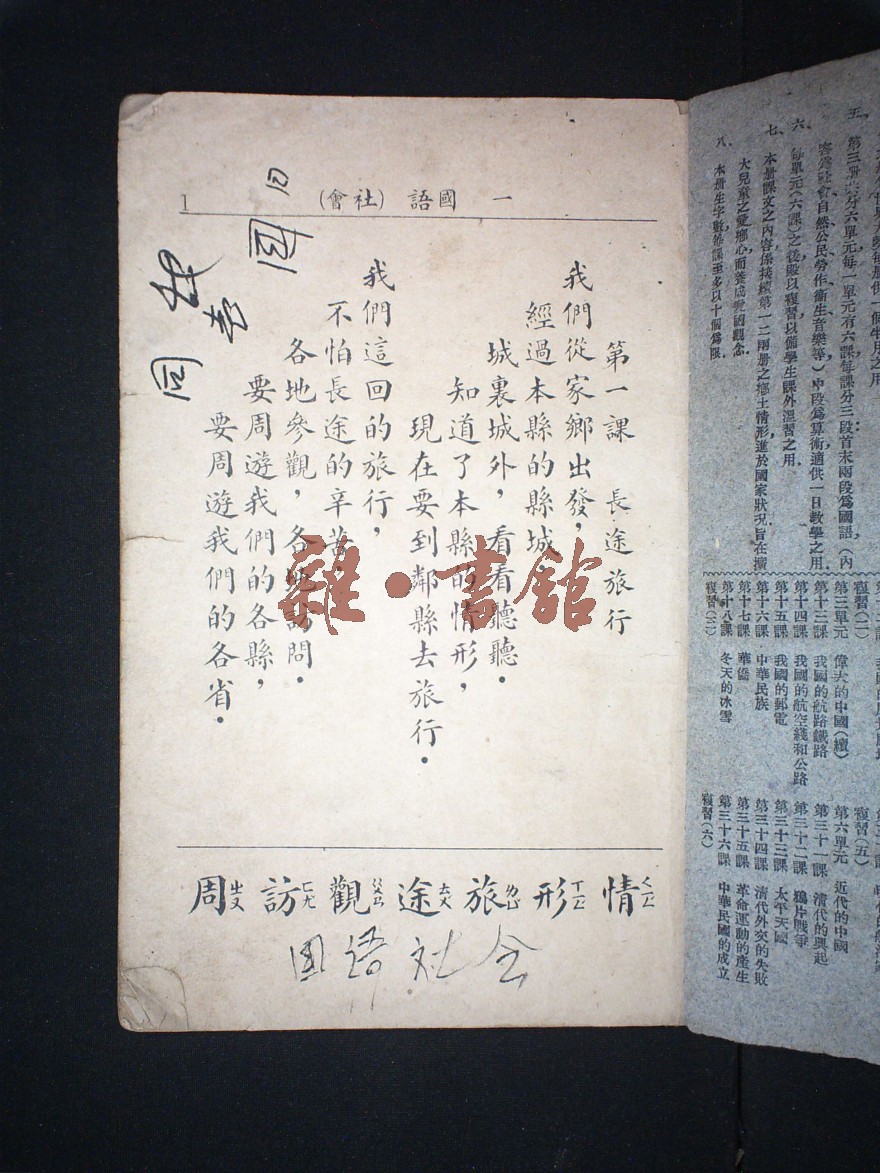 一 國語 (社會) 1
第一課 長途旅行
我們從家鄉出發，
經過本縣的縣城，
城裏城外，看看聽聽．
知道了本縣的情形，
現在要到鄰縣去旅行．
我們這回的旅行，
不怕長途的辛苦，
各地參觀，各地訪問．
要周遊我們的各縣，
要周遊我們的各省．
情ㄑㄧㄥ 形ㄒㄧㄥ 旅ㄌㄩ 途ㄊㄨ 觀ㄍㄨㄢ 訪ㄈㄤ 周ㄓㄡ
国语社会
雜·書館
五、第三册共分六單元每一單元有六課每課分三段首末兩段爲國語（內
容爲社會自然公民勞作衞生音樂等）中段爲算術適供一日教學之用．
六、每單元（六課）之後殿以複習以備學生課外溫習之用．
七、本册課文之內容係接續第一二兩册之鄉土情形進於國家狀況旨在擴
大兒童之愛鄉心而養成愛國觀念．
八、本册生字數每課至多以十個爲限．
複習（二）
第三單元 偉大的中國（續）
第十三課 我國的航路鐵路
第十四課 我國的航空綫和公路
第十五課 我國的郵電
第十六課 中華民族
第十七課 華僑
第十八課 冬天的冰雪
複習（三）
複習（五）
第六單元 近代的中國
第三十一課 清代的興起
第三十二課 鴉片戰爭
第三十三課 太平天國
第三十四課 清代外交的失敗
第三十五課 革命運動的產生
第三十六課 中華民國的成立
複習（六）